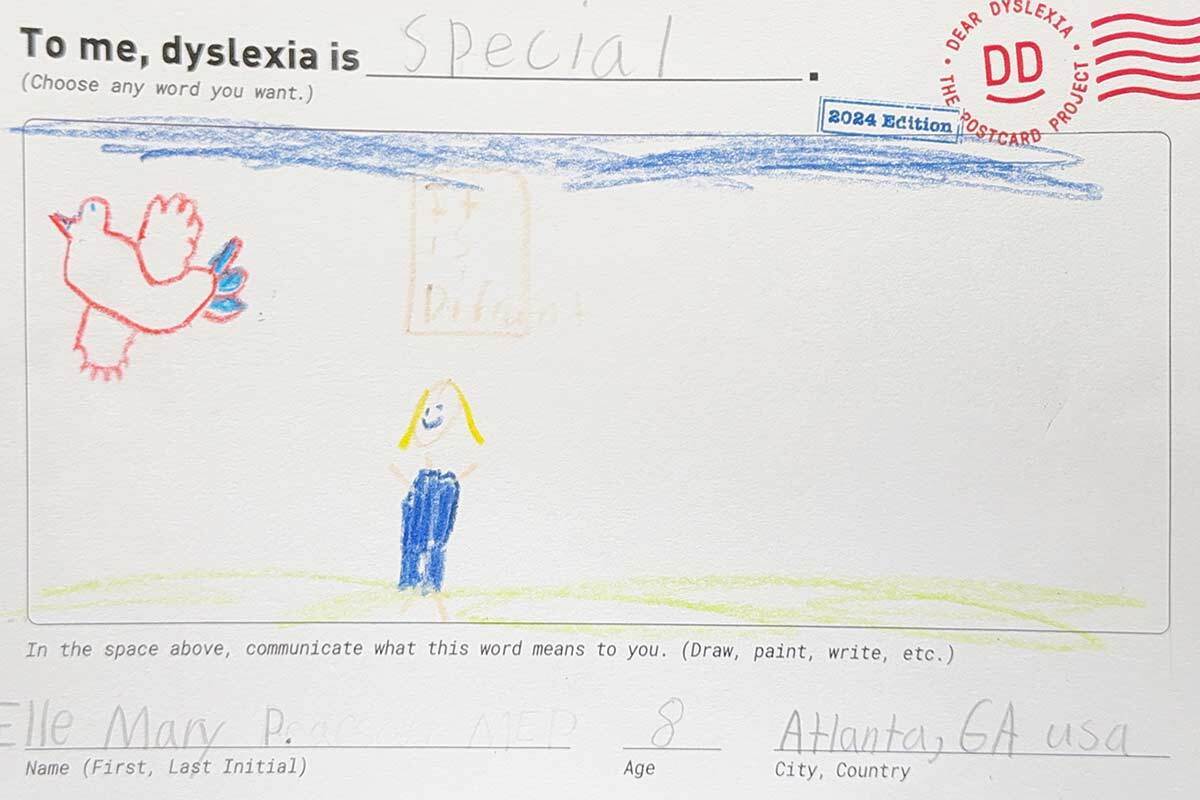 To me, dyslexia is special.
(Choose any word you want.)
DEAR DYSLEXIA
DD
THE POSTCARD PROJECT
2024 Edition
It
is
In the space above, communicate what this word means to you. (Draw, paint, write, etc.)
Elle Mary P. MEP 8 Atlanta, GA usa
Name (First, Last Initial) Age City, Country